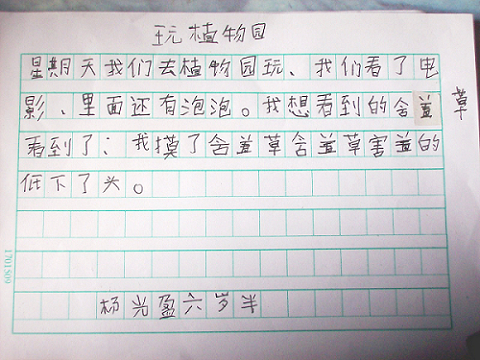 玩植物园
星期天我们去植物园玩、我们看了电
影、里面还有泡泡。我想看到的含羞草
看到了；我摸了含羞草含羞草害羞的
低下了头。
杨光盈六岁半
1701509